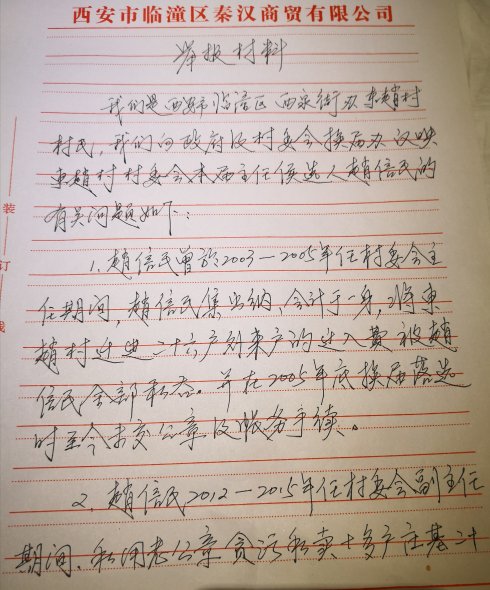 西安市临潼区秦汉商贸有限公司
举报材料
我们是西安市临潼区西泉街办东赵村
村民，我们向政府及村委会换届办反映
东赵村村委会本届主任候选人赵信民的
有关问题如下：
1、赵信民曾於2003—2005年任村委会主
任期间，赵信民集出纳、会计于一身，将东
赵村迁进二十六户外来户的进入费被赵
信民全部私吞。并在2005年底换届落选
时至今未交公章及账务手续。
2、赵信民2012—2015年任村委会副主任
期间、私用老公章贪污私卖十多户庄基二十
装
订